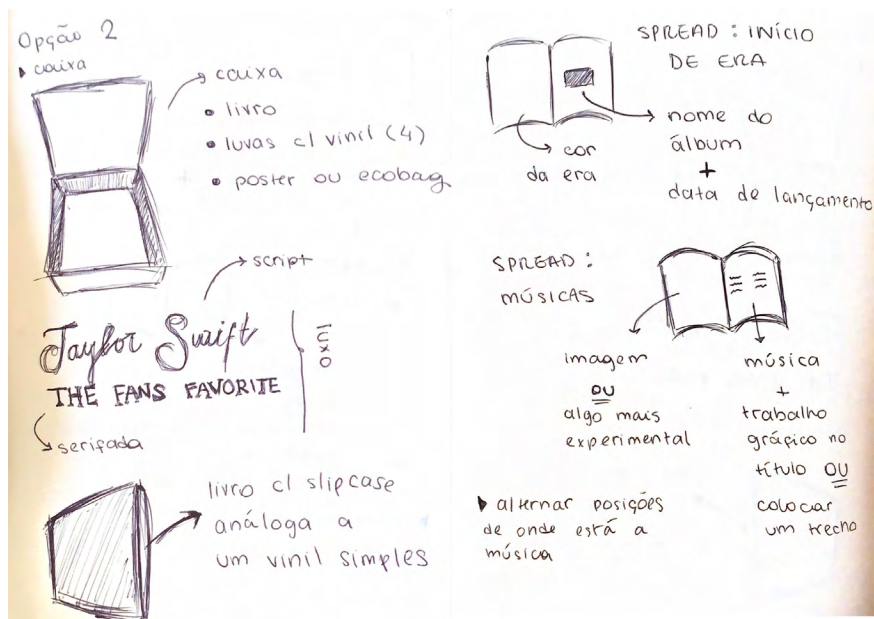 Opção 2
caixa
caixa
livro
luvas c/ vinil (4)
poster ou ecobag
script
Taylor Swift
THE FANS FAVORITE
luxo
serifada
livro c/ slipcase
análoga a
um vinil simples
SPREAD: INÍCIO
DE ERA
nome do
álbum
+
data de lançamento
cor
da era
SPREAD:
MÚSICAS
imagem
OU
algo mais
experimental
música
+
trabalho
gráfico no
título OU
colocar
um trecho
alternar posições
de onde está a
música